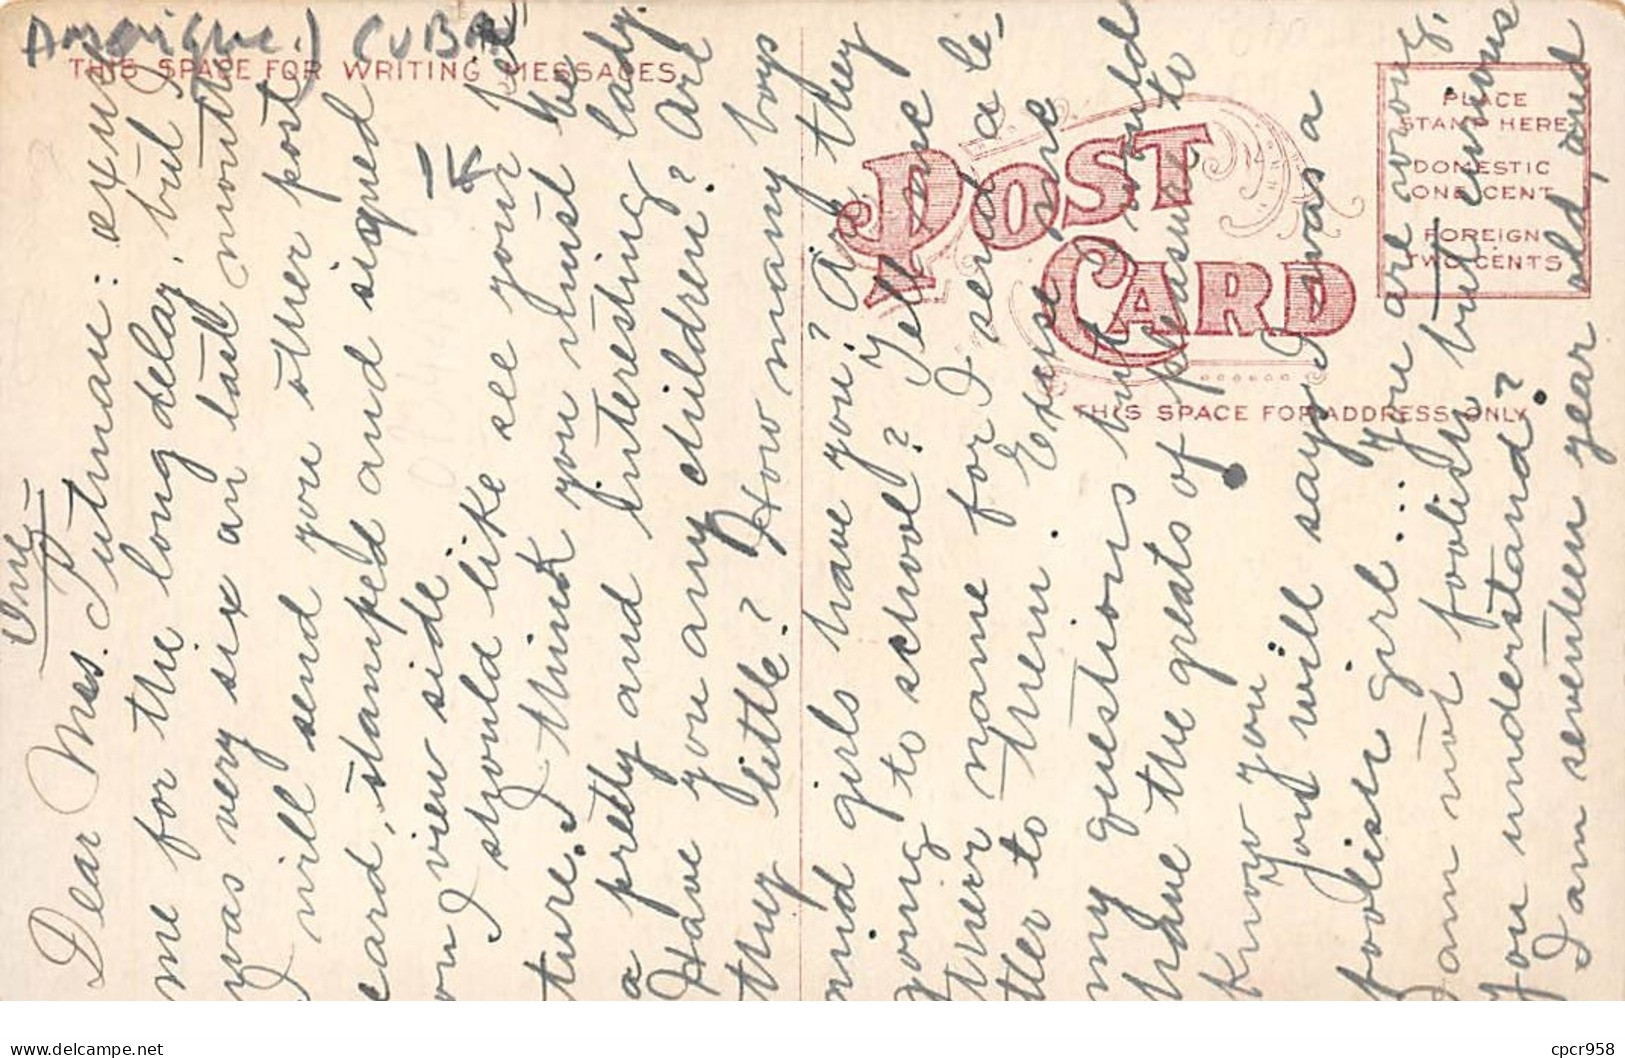 Amérique) CUBA
THIS SPACE FOR WRITING MESSAGES
1K
POST CARD
PLACE
STAMP HERE
DOMESTIC
ONE CENT
FOREIGN
TWO CENTS
THIS SPACE FOR ADDRESS ONLY
Dear Mrs. Putman: exuse
me for the long delay, but I
was very six an last mouth
I will send you other post
card, stamped and signed
on view side.
I should like see your pec
ture. I think you must be
a pretty and interesting lady.
Have you any children? Are
they little? How many boys
and girls have you? Are they
going to school? Tell me
their name for I send a le-
tter to them. Exuse me
my questions but I would
have the greats of pleasure to
Know you.
You will say: I was a
foolish girl... you are wrong,
I am not foolish but curious
you understand?
I am seventeen year old, and
delcampe.net
cpcr958